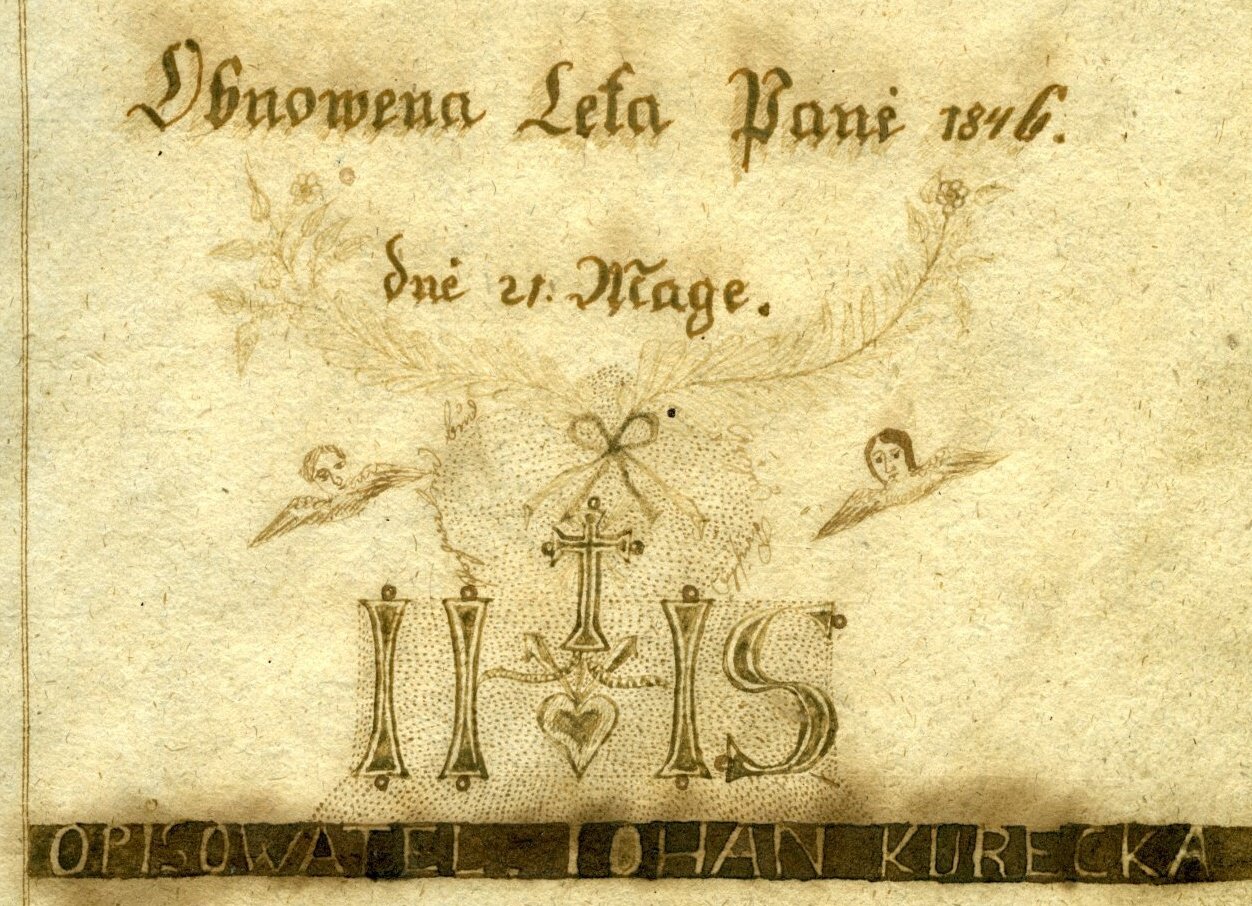 Obnowena Leta Panė 1846.
dnė 21. Mage.
IHS
OPISOWATEL. IOHAN KURECKA